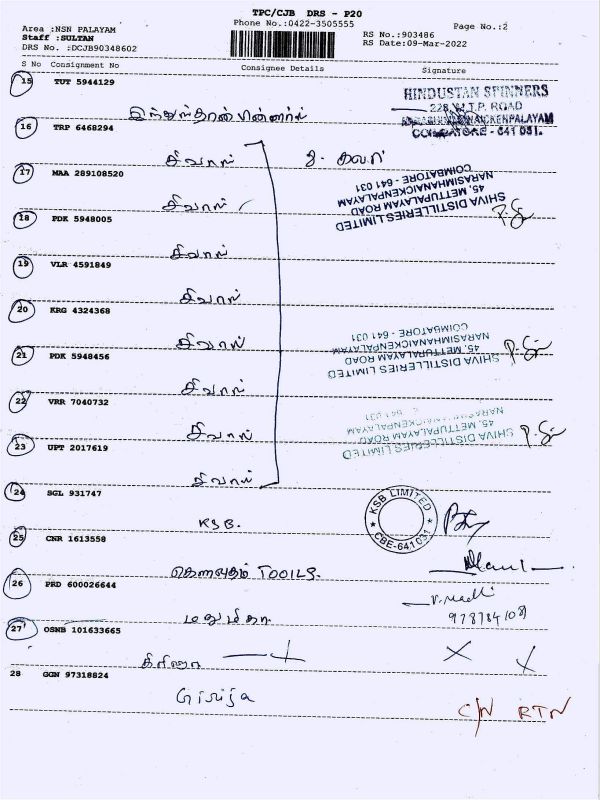 TPC/CJB DRS - P20
Area :NSN PALAYAM
Phone No.:0422-3505555
Page No.:2
Staff :SULTAN
RS No.:903486
DRS No. :DCJB90348602
RS Date:09-Mar-2022
S No Consignment No Consignee Details Signature
15 TUT 5944129
HINDUSTAN SPINNERS
228, M.T.P. ROAD
COIMBATORE - 641 031.
16 TRP 6468294
சிவால்
17 MAA 289108520
சிவால்
SHIVA DISTILLERIES LIMITED
45, METTUPALAYAM ROAD
NARASIMHANAICKENPALAYAM
COIMBATORE - 641 031
18 PDK 5948005
சிவால்
19 VLR 4591849
சிவால்
20 KRG 4324368
சிவால்
SHIVA DISTILLERIES LIMITED
45, METTUPALAYAM ROAD
NARASIMHANAICKENPALAYAM
COIMBATORE - 641 031
21 PDK 5948456
சிவால்
22 VRR 7040732
சிவால்
SHIVA DISTILLERIES LIMITED
45, METTUPALAYAM ROAD
23 UPT 2017619
சிவால்
24 SGL 931747
KSB.
KSB LIMITED
CBE-641 031
25 CNR 1613558
கௌதம் TOOLS.
26 PRD 600026644
மதுமிதா
27 OSNB 101633665
கிரிஜா
28 GGN 97318824
Girija
C/N RTN